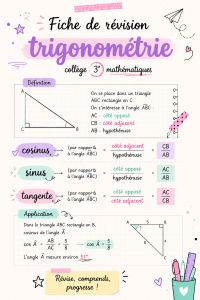 Fiche de révision
trigonométrie
collège 3e mathématiques
Définition
On se place dans un triangle
ABC rectangle en C.
On s'intéresse à l'angle ABC.
AC : côté opposé
CB : côté adjacent
AB : hypoténuse
A
C
B
cosinus (par rapport à l'angle ABC) = côté adjacent / hypoténuse = CB / AB
sinus (par rapport à l'angle ABC) = côté opposé / hypoténuse = AC / AB
tangente (par rapport à l'angle ABC) = côté opposé / côté adjacent = AC / CB
Application
Dans le triangle ABC rectangle en B,
cosinus de l'angle A :
cos A = AB / AC = 5 / 8 → cos A = 5 / 8
L'angle A mesure environ 51°
A
5
B
8
C
Révise, comprends,
progresse !